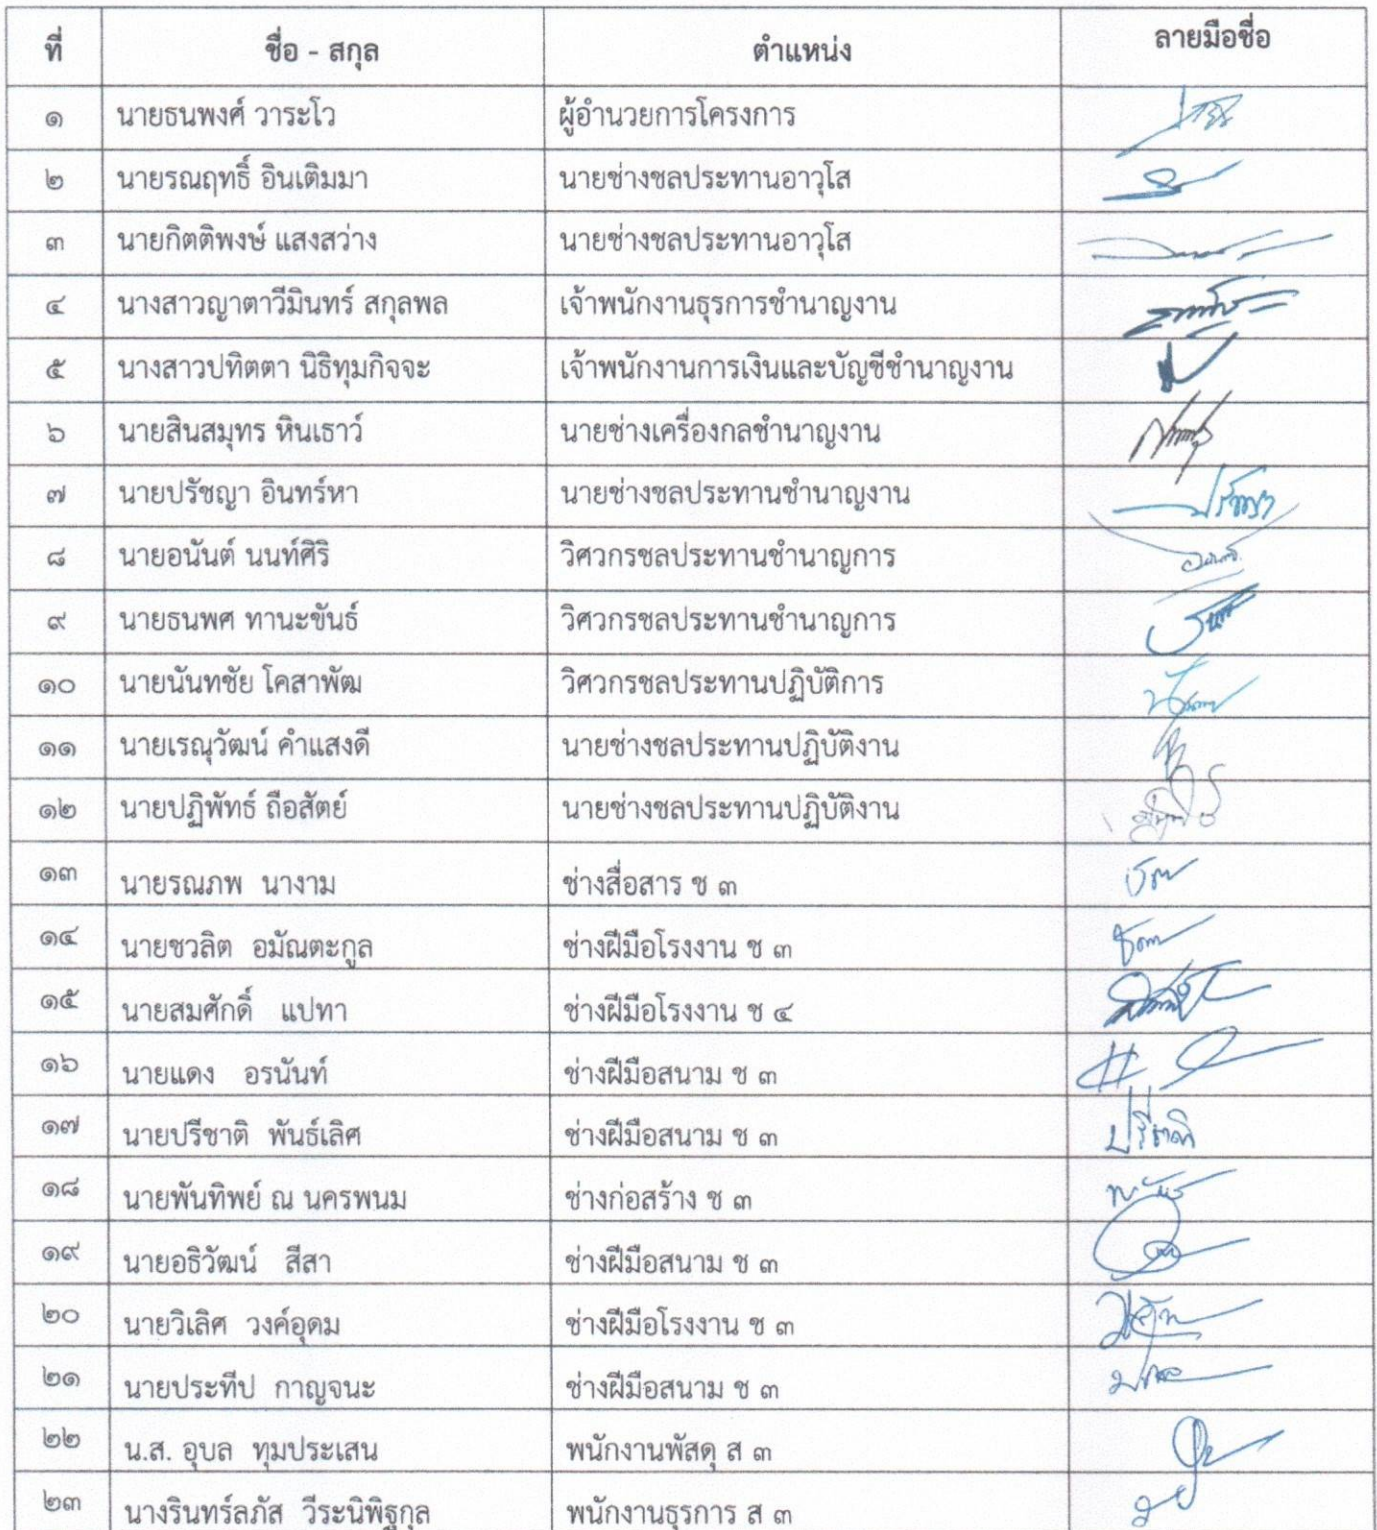 ที่ ชื่อ - สกุล ตำแหน่ง ลายมือชื่อ
๑ นายธนพงศ์ วาระโว ผู้อำนวยการโครงการ
๒ นายรณฤทธิ์ อินเติมมา นายช่างชลประทานอาวุโส
๓ นายกิตติพงษ์ แสงสว่าง นายช่างชลประทานอาวุโส
๔ นางสาวญาตาวีมินทร์ สกุลพล เจ้าพนักงานธุรการชำนาญงาน
๕ นางสาวปทิตตา นิธิทุมกิจจะ เจ้าพนักงานการเงินและบัญชีชำนาญงาน
๖ นายสินสมุทร หินเธาว์ นายช่างเครื่องกลชำนาญงาน
๗ นายปรัชญา อินทร์หา นายช่างชลประทานชำนาญงาน ปรัชญา
๘ นายอนันต์ นนท์ศิริ วิศวกรชลประทานชำนาญการ
๙ นายธนพศ ทานะขันธ์ วิศวกรชลประทานชำนาญการ
๑๐ นายนันทชัย โคสาพัฒ วิศวกรชลประทานปฏิบัติการ
๑๑ นายเรณุวัฒน์ คำแสงดี นายช่างชลประทานปฏิบัติงาน
๑๒ นายปฏิพัทธ์ ถือสัตย์ นายช่างชลประทานปฏิบัติงาน
๑๓ นายรณภพ นางาม ช่างสื่อสาร ช ๓
๑๔ นายชวลิต อมัณตะกูล ช่างฝีมือโรงงาน ช ๓
๑๕ นายสมศักดิ์ แปทา ช่างฝีมือโรงงาน ช ๔
๑๖ นายแดง อรนันท์ ช่างฝีมือสนาม ช ๓
๑๗ นายปรีชาติ พันธ์เลิศ ช่างฝีมือสนาม ช ๓ ปรีชาติ
๑๘ นายพันทิพย์ ณ นครพนม ช่างก่อสร้าง ช ๓
๑๙ นายอธิวัฒน์ สีสา ช่างฝีมือสนาม ช ๓
๒๐ นายวิเลิศ วงค์อุดม ช่างฝีมือโรงงาน ช ๓
๒๑ นายประทีป กาญจนะ ช่างฝีมือสนาม ช ๓
๒๒ น.ส. อุบล ทุมประเสน พนักงานพัสดุ ส ๓
๒๓ นางรินทร์ลภัส วีระนิพิฐกุล พนักงานธุรการ ส ๓